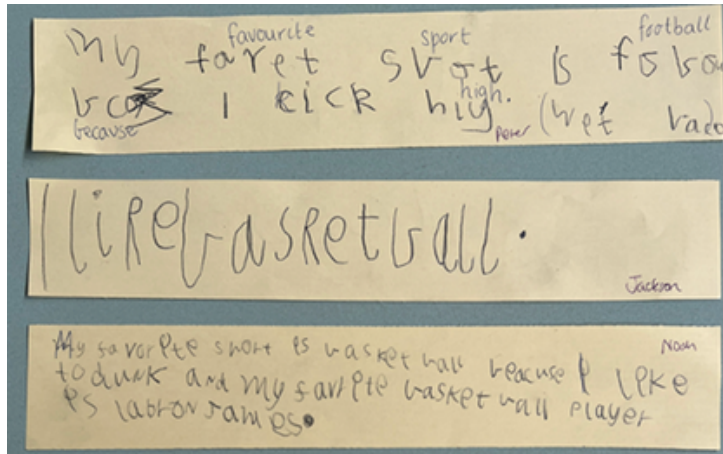 favourite sport football
my favret sbot is fobou
bcos I kick hig high.
because Peter (wet bad
I like basketball.
Jackson
My favorite sport is basket ball because I like
Noah
to dunk and my favrite basket ball player
is labron james.